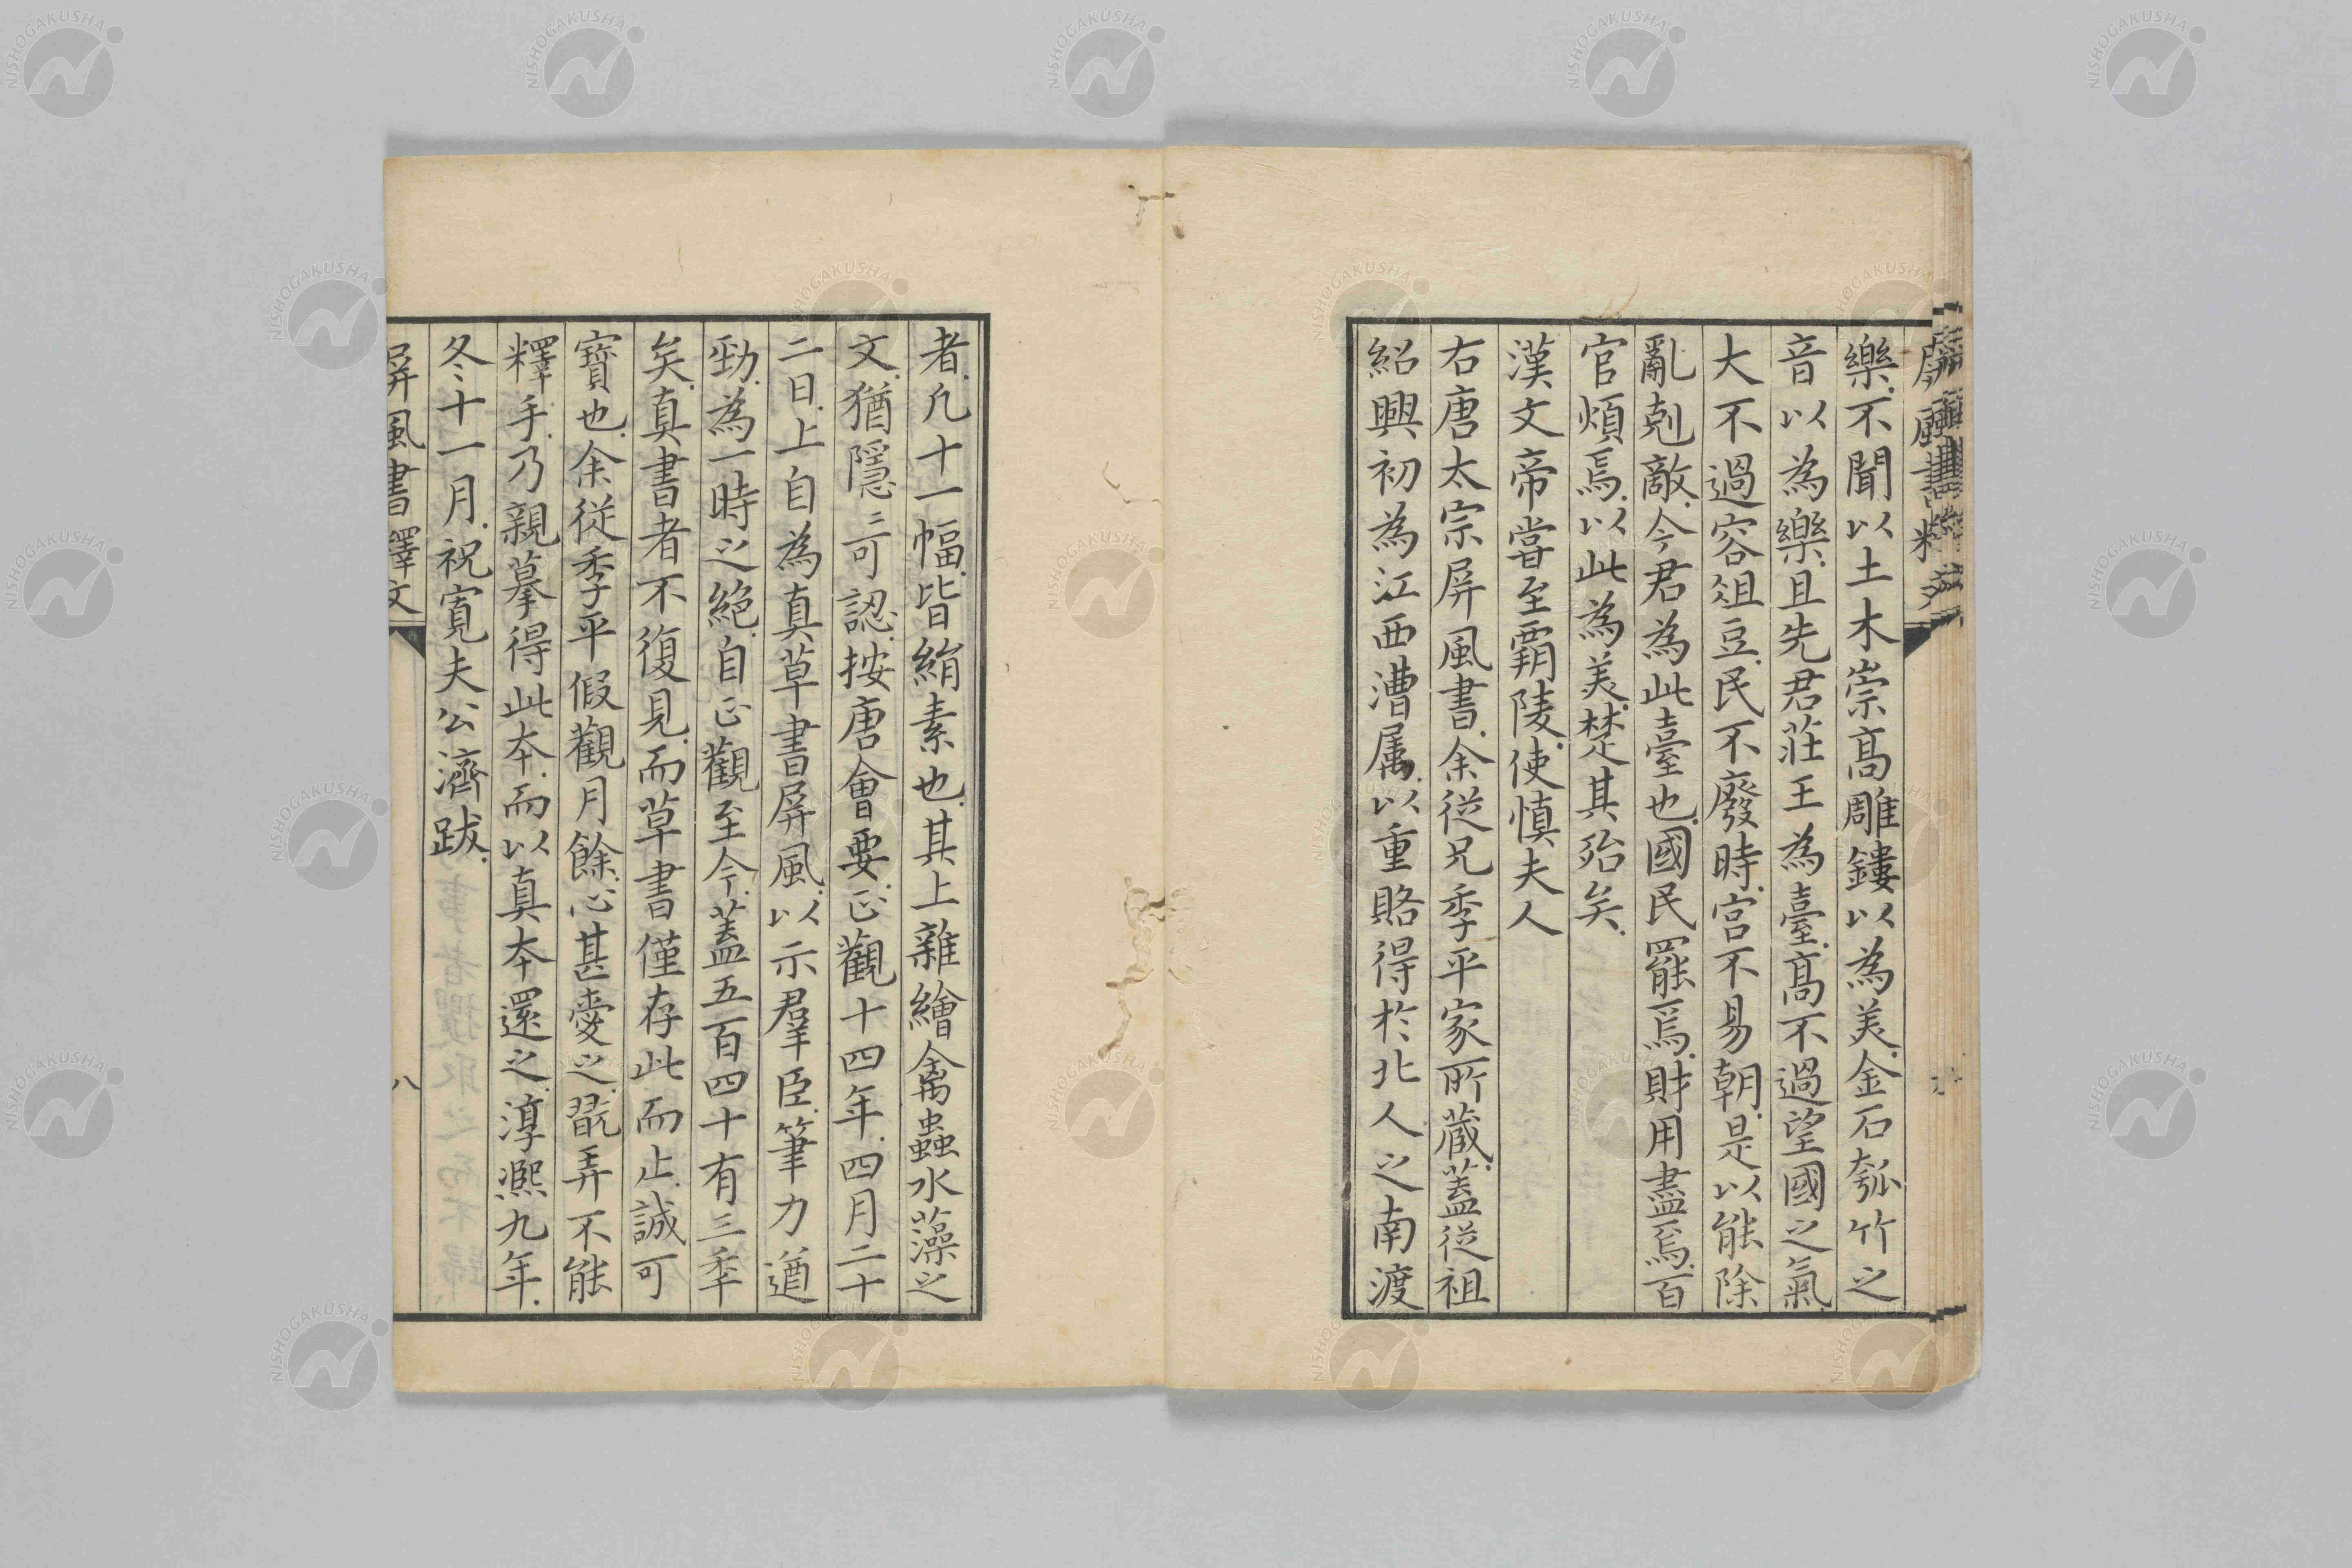 樂不聞以土木崇髙雕鏤以為美金石瓠竹之
音以為樂且先君莊王為臺髙不過望國之氣
大不過容俎豆民不廢時官不易朝是以能除
亂剋敵今君為此臺也國民罷焉財用盡焉百
官煩焉以此為美楚其殆矣
漢文帝嘗至覇陵使慎夫人
右唐太宗屏風書余從兄季平家所蔵蓋從祖
紹興初為江西漕属以重賂得於北人之南渡
者凡十一幅皆絹素也其上雜繪禽蟲水藻之
文猶隱〻可認按唐會要正觀十四年四月二十
二日上自為真草書屏風以示羣臣筆力遒
勁為一時之絶自正觀至今蓋五百四十有三季
矣真書者不復見而草書僅存此而止誠可
寶也余從季平假觀月餘心甚愛之翫弄不能
釋手乃親摹得此本而以真本還之淳熙九年
冬十一月祝寬夫公濟跋
屏風書釋文
八
NISHOGAKUSHA